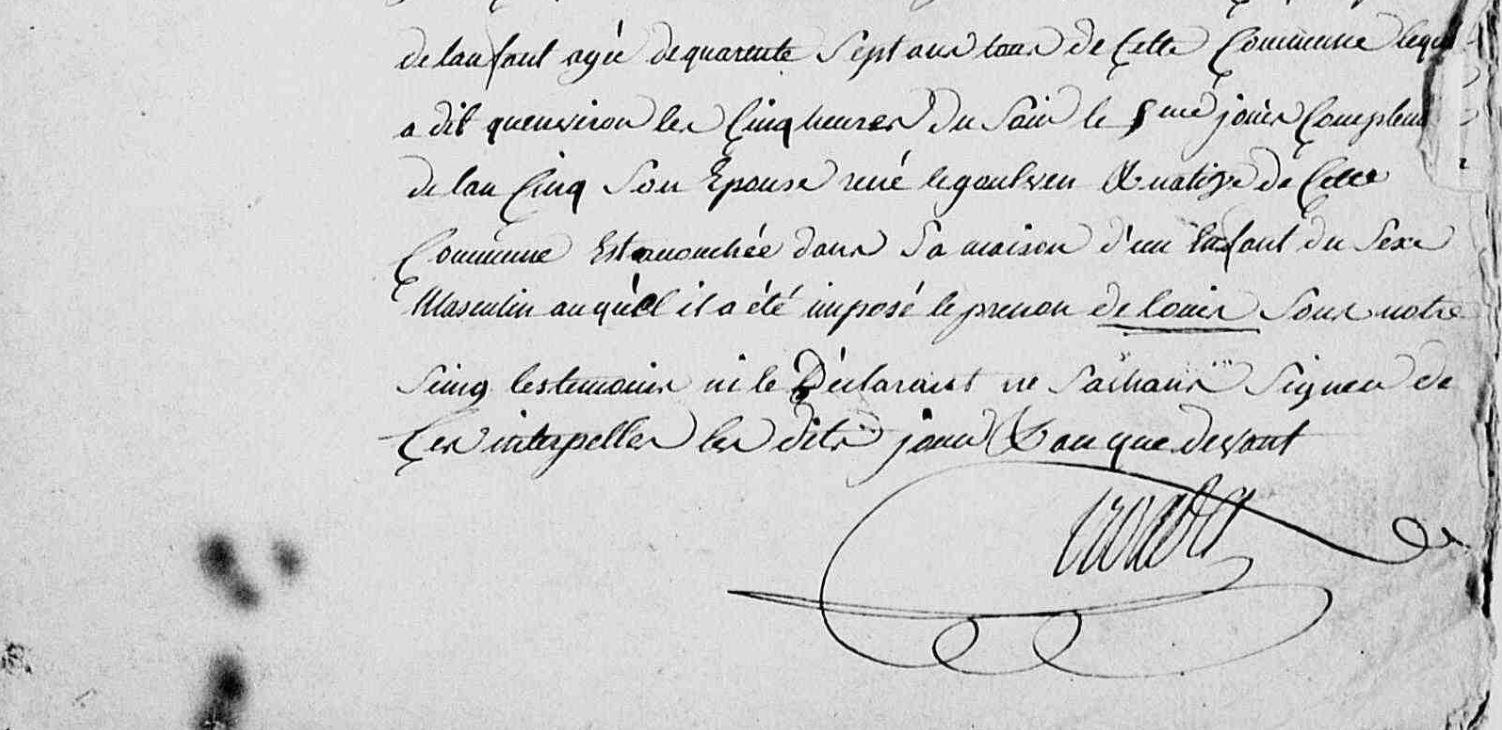 de lanfant agée de quarente Sept ans tous de Cette Commune lequel
a dit quenviron les Cinq heures Du Soir le 5me jours Complem
de lan Cinq Son Epouse rené legoulven & native de Cette
Commune Est acouchée dans Sa maison d'un Enfant du Sexe
Masculin au quel il a été imposé le prenon de louis Sous notre
Seing les temoins ni le Déclarant ne Sachans Signer de
Ces interpelles les dits jour & an que devant